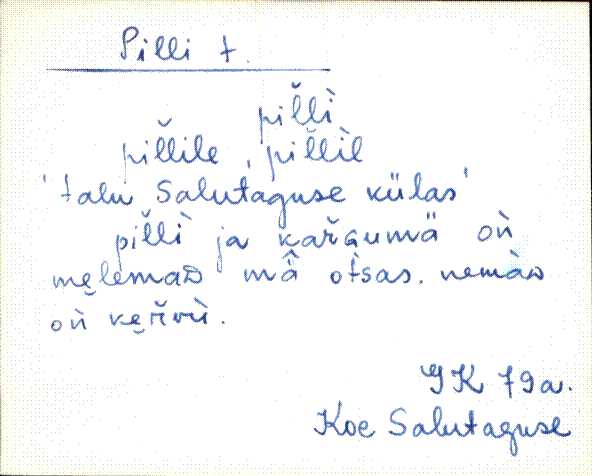 Pilli t.
pil̆l̀i
pil̆lile, pil̆lìl
'talu Salutaguse külas'
pil̆lì ja kar̆gumä oǹ
me̮lemaᴅ mâ otsas. nemàᴅ
oǹ ke̮r̆vù.
GK 79a.
Koe Salutaguse